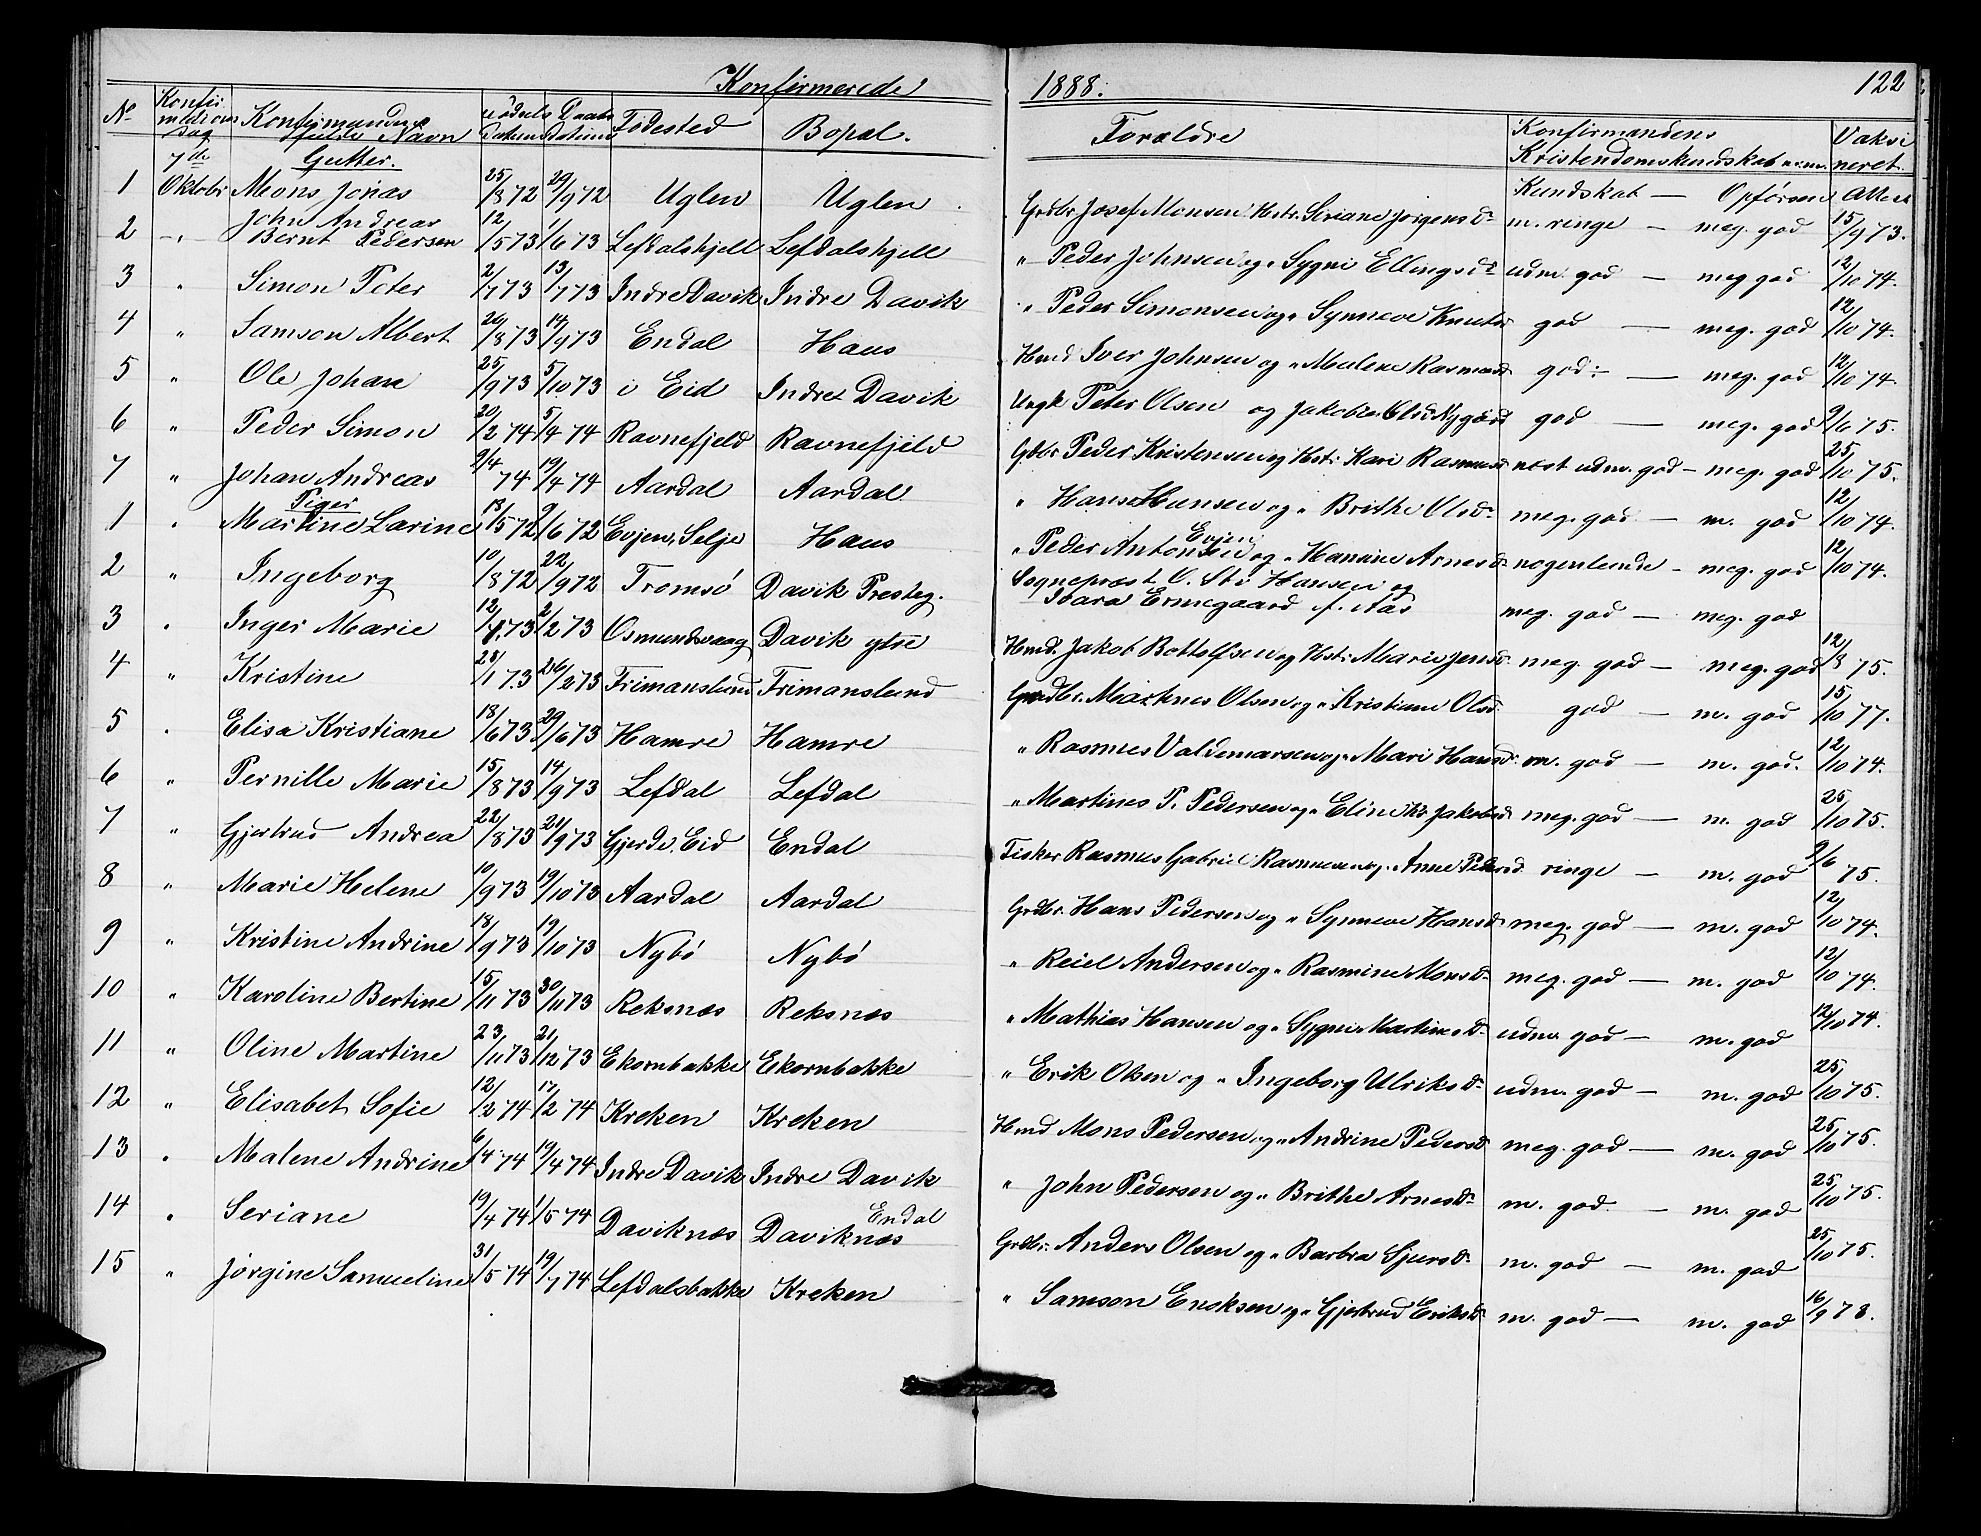 Konfirmerede 1888. 122
No Konfirmations dag Konfirmandens fulde Navn Fødsels Datum Daabs Datum Fødested Bopæl. Forældre Konfirmandens Kristendomskundskab m.m. Vaksineret
7de Gutter. Kundskab — Opførsel Attest
1 Oktobr Mons Jonas 25/8 72 29/9 72 Uglen Uglen Grdbr. Josef Monsen Hstr. Seriane Jørgensdr m. ringe — meg. god 15/9 73.
2 " John Andreas Bernt Pedersen 12/5 73 1/6 73 Lefdalshjell Lefdalshjell " Peder Johnsen og " Sygni Ellingsdr udm. god — meg god 12/10 74.
3 " Simon Peter 2/7 73 13/7 73 Indre Davik Indre Davik " Peder Simonsen og " Synneve Knutsdr god — meg. god 12/10 74.
4 " Samson Albert 20/8 73 14/9 73 Endal Haus Hmd Iver Johnsen og " Malene Rasmusdr god ÷ — meg. god 12/10 74.
5 " Ole Johan 25/9 73 5/10 73 i Eid Indre Davik Ungk Peter Olsen og Jakobea Olsd. Nygård god — meg. god 9/6 75.
6 " Peder Simon 20/2 74 5/4 74 Ravnefjeld Ravnefjeld Gdbr. Peder Kristensen og Hst. Kari Rasmusdr næst udm. god — meg. god 25/10 75.
7 " Johan Andreas 9/4 74 19/4 74 Aardal Aardal " Hans Hansen og " Brithe Olsdr meg. god — m. god 12/10 74.
Piger
1 " Martine Larine 18/5 72 9/6 72 Evjen, Selje Haus " Peder Antonsen Evjen og " Hansine Arnesdr nogenlunde - meg. god 12/10 74.
2 " Ingeborg 10/8 72 22/9 72 Tromsø Davik Presteg. Sogneprest O. Stø Hansen og Thara Ermegaard f. Aas meg. god — meg. god
3 " Inger Marie 12/1 73 2/2 73 Osmundsvaag Davik ytre Hmd. Jakob Bottolfsen og Hst. Marie Jensdr meg. god — meg. god 12/8 75.
4 " Kristine 28/1 73 26/2 73 Frimanslund Frimanslund Grdbr. Markus Olsen og " Kristiane Olsd. god — m. god 15/10 77.
5 " Elisa Kristiane 18/6 73 29/6 73 Hamre Hamre " Rasmus Valdemarsen og " Mari Hansdr m. god — m. god. 12/10 74.
6 " Pernille Marie 15/8 73 14/9 73 Lefdal Lefdal " Martines P. Pedersen og " Eline Jakobsd meg. god — m. god 25/10 75.
7 " Gjertrud Andrea 22/8 73 21/9 73 Gjerde, Eid Endal Fisker Rasmus Gabriel Rasmussen og " Anne Pedersd. ringe — m. god 9/6 75.
8 " Marie Helene 10/9 73 19/10 73 Aardal Aardal Grdbr. Hans Pedersen og " Synneve Hansdr meg. god — m. god 12/10 74.
9 " Kristine Andrine 18/9 73 19/10 73 Nybø Nybø " Reiel Andersen og " Rasmine Monsdr meg. god — m. god 12/10 74.
10 " Karoline Bertine 15/11 73 30/11 73 Reksnæs Reksnæs " Mathias Hansen og " Sygni Martinsdr udm. god — m. god 12/10 74.
11 " Oline Martine 23/11 73 21/12 73 Ekornbakke Ekornbakke " Erik Olsen og " Ingeborg Ulriksdr udm. god — m. god 25/10 75.
12 " Elisabet Sofie 12/2 74 17/2 74 Kreken Kreken Hmd Mons Pedersen og " Andrine Pedersdr meg. god — m. god 25/10 75.
13 " Malene Andrine 6/4 74 19/4 74 Indre Davik Indre Davik " John Pedersen og " Brithe Arnesdr m. god — m. god 25/10 75.
14 " Seriane 19/4 74 1/5 74 Daviknæs Daviknæs Endal Grdbr. Anders Olsen og " Barbra Sjursdr m. god — m. god 25/10 75.
15 " Jørgine Samueline 31/5 74 19/7 74 Lefdalsbakke Kreken " Samson Enoksen og " Gjertrud Eriksdr m. god — m. god 16/9 78.